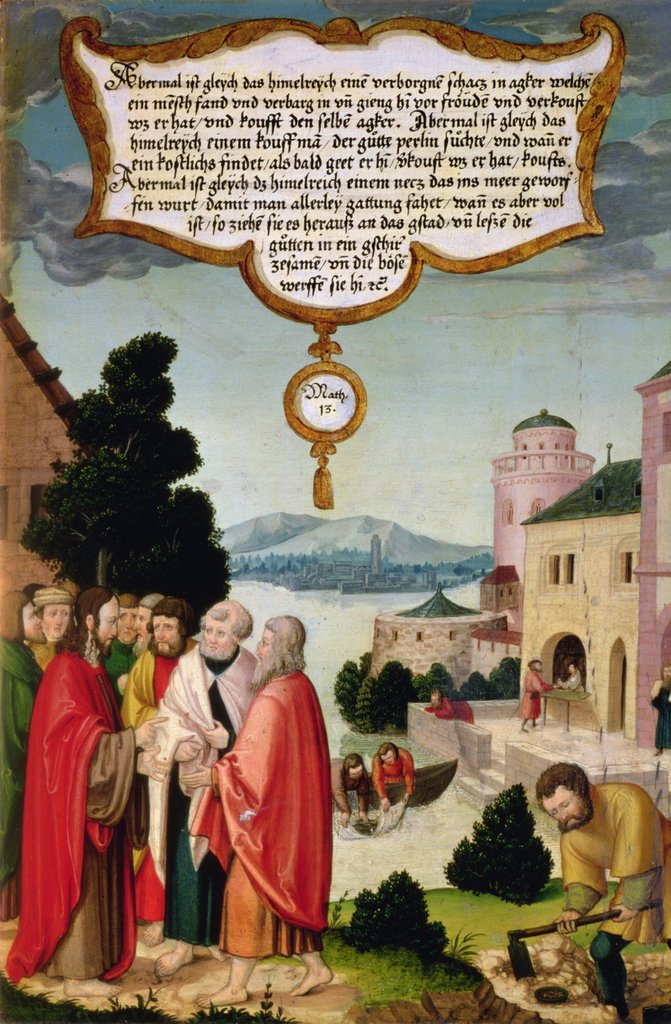 Abermal ist gleych das himelreych einē verborgnē schacz in agker welchē
ein mēsch fand vnd verbarg in vn̄ gieng hī vor fröuden vnd verkoust
wz er hat / vnd koufft den selbē agker. Abermal ist gleych das
himelreych einem kouffmā / der gütte perlin sůchte / vnd wan̄ er
ein kostlichs findet / als bald geet er hī / v̄koust wz er hat / koufts.
Abermal ist gleych dz himelreich einem necz das ins meer geworf-
fen wurt / damit man allerley gattung fahet / wan̄ es aber vol
ist / so ziehē sie es herauß an das gstad / vn̄ leßē die
gůtten in ein gschir
zesamē / vn̄ die bösē
werffē sie hī ꝛc̄.
Math.
13.